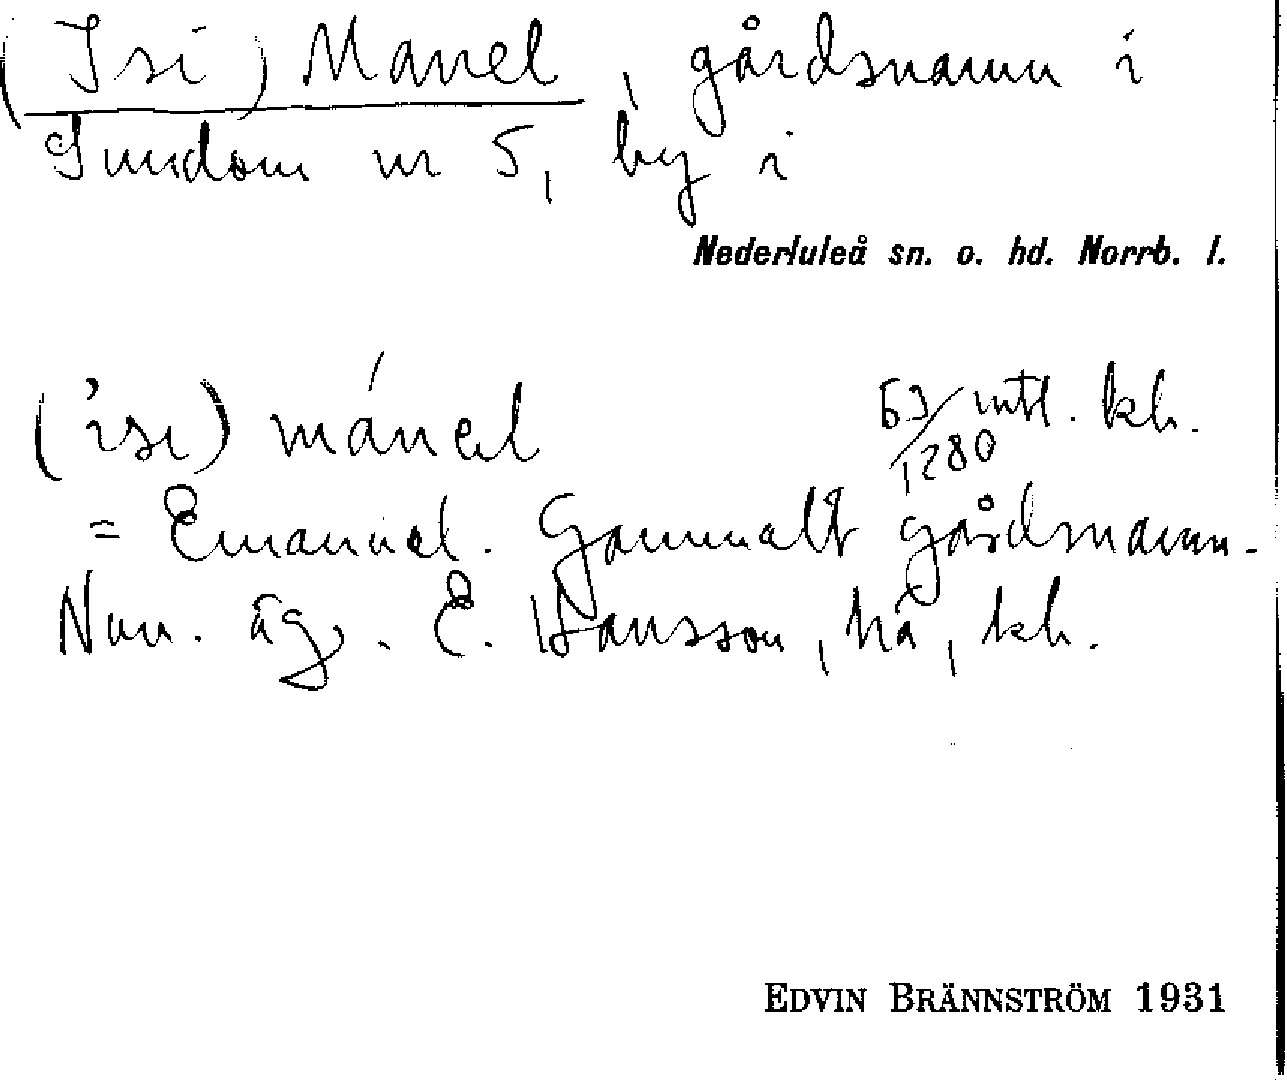 (Isi) Manel, gårdsnamn i
Sundom nr 5, by i
Nederluleå sn. o. hd. Norrb. l.
('isi) mánel 63/1280 mtl. kh.
= Emanuel. Gammalt gårdsnamn.
Nuv. äg. E. Hansson, kh.
EDVIN BRÄNNSTRÖM 1931